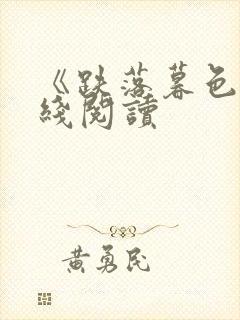 《跌落暮色
綫閱讀
黃勇民